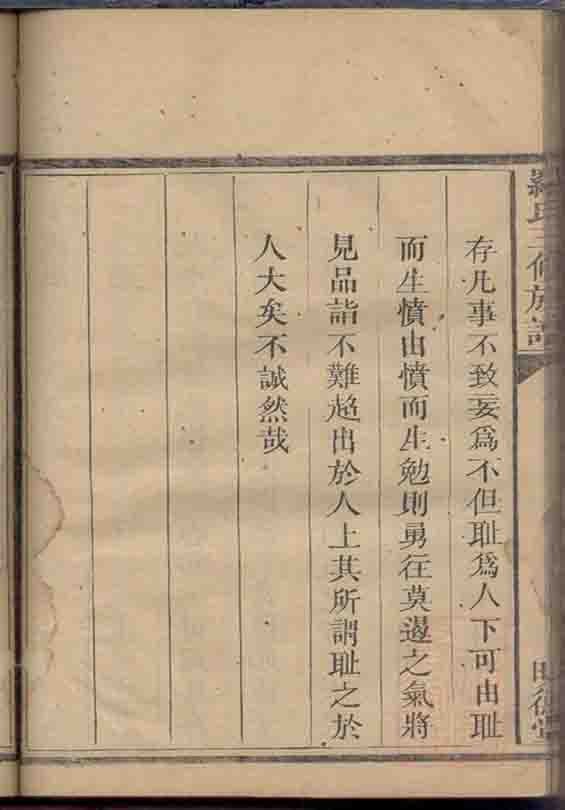 羅氏三修族譜
存凡事不致妄爲不但耻爲人下可由耻
而生憤由憤而生勉則勇往莫遏之氣將
見品詣不難趋出於人上其所謂耻之於
人大矣不誠然哉